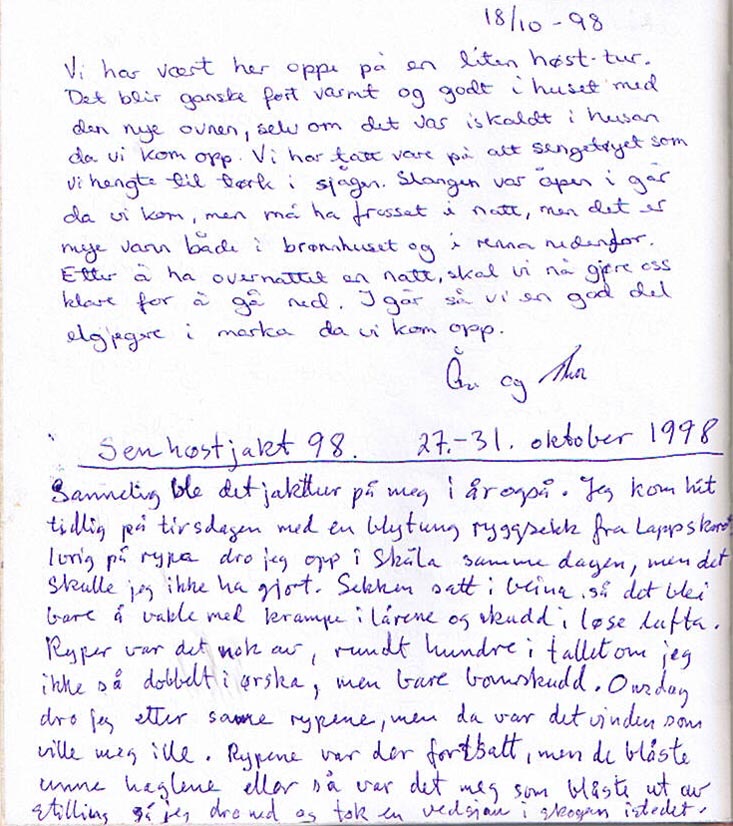 18/10-98
Vi har vært her oppe på en liten høst-tur.
Det blir ganske fort varmt og godt i huset med
den nye ovnen, selv om det var iskaldt i husan
da vi kom opp. Vi har tatt vare på alt sengetøyet som
vi hengte til tørk i sjågen. Slangen var åpen i går
da vi kom, men må ha frosset i natt, men det er
mye vann både i brønnhuset og i renna nedenfor.
Etter å ha overnattet en natt, skal vi nå gjøre oss
klare for å gå ned. I går så vi en god del
elgjegere i marka da vi kom opp.
og
Senhøstjakt 98. 27.-31. oktober 1998
Sannelig ble det jakttur på meg i år også. Jeg kom hit
tidlig på tirsdagen med en blytung ryggsekk fra Lappskaret
Ivrig på rypa dro jeg opp i Skåla samme dagen, men det
skulle jeg ikke ha gjort. Sekken satt i beina, så det blei
bare å vakle med krampe i lårene og skudd i løse lufta.
Ryper var det nok av, rundt hundre i tallet om jeg
ikke så dobbelt i ørska, men bare bomskudd. Onsdag
dro jeg etter samme rypene, men da var det vinden som
ville meg ille. Rypene var der fortsatt, men de blåste
unne haglene eller så var det meg som blåste ut av
stilling så jeg dro ned og tok en vedsjau i skogen istedet.